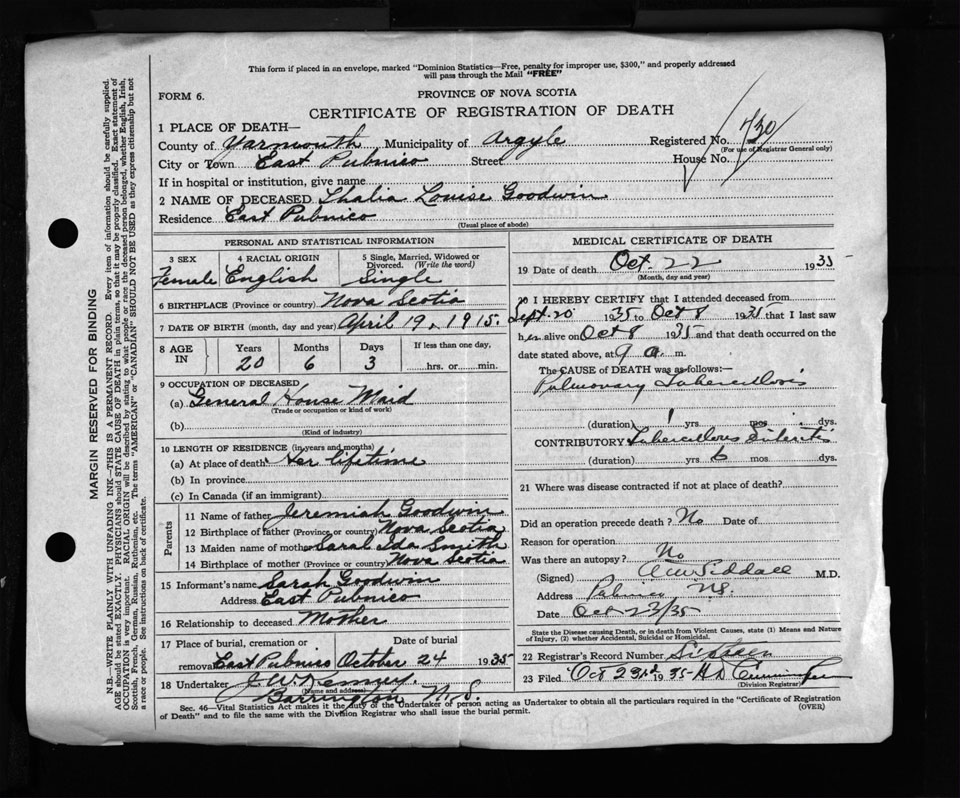 This form if placed in an envelope, marked "Dominion Statistics—Free, penalty for improper use, $300," and properly addressed
will pass through the Mail "FREE"
FORM 6.
PROVINCE OF NOVA SCOTIA
CERTIFICATE OF REGISTRATION OF DEATH
1 PLACE OF DEATH—
County of Yarmouth Municipality of Argyle Registered No. 730
(For use of Registrar General only)
City or Town East Pubnico Street House No.
If in hospital or institution, give name
2 NAME OF DECEASED Thalia Louise Goodwin
Residence East Pubnico
(Usual place of abode)
PERSONAL AND STATISTICAL INFORMATION
3 SEX 4 RACIAL ORIGIN 5 Single, Married, Widowed or
Divorced. (Write the word)
Female English Single
6 BIRTHPLACE (Province or country) Nova Scotia
7 DATE OF BIRTH (month, day and year) April 19, 1915.
8 AGE IN Years Months Days If less than one day,
20 6 3 hrs. or min.
9 OCCUPATION OF DECEASED
(a) General House Maid
(Trade or occupation or kind of work)
(b)
(Kind of industry)
10 LENGTH OF RESIDENCE (in years and months)
(a) At place of death Her lifetime
(b) In province
(c) In Canada (if an immigrant)
Parents
11 Name of father Jeremiah Goodwin
12 Birthplace of father (Province or country) Nova Scotia
13 Maiden name of mother Sarah Ida Smith
14 Birthplace of mother (Province or country) Nova Scotia
15 Informant's name Sarah Goodwin
Address East Pubnico
16 Relationship to deceased Mother
17 Place of burial, cremation or Date of burial
removal East Pubnico October 24 1935
18 Undertaker J. W. Kenney
(Name and address)
Barrington N.S.
MEDICAL CERTIFICATE OF DEATH
19 Date of death Oct. 22 1935
(Month, day and year)
20 I HEREBY CERTIFY that I attended deceased from
Sept. 20 1935 to Oct 8 1935 that I last saw
her alive on Oct 8 1935 and that death occurred on the
date stated above, at 9 a. m.
The CAUSE OF DEATH was as follows:—
Pulmonary Tuberculosis
(duration) 1 yrs mos dys.
CONTRIBUTORY Tuberculous Enteritis
(duration) yrs 6 mos dys.
21 Where was disease contracted if not at place of death?
Did an operation precede death? No Date of
Reason for operation
Was there an autopsy? No
(Signed) Siddall M.D.
Address Pubnico NS.
Date Oct 23/35
State the Disease causing Death, or in death from Violent Causes, state (1) Means and Nature
of Injury, (2) whether Accidental, Suicidal or Homicidal.
22 Registrar's Record Number Sixteen
23 Filed Oct 23rd 1935 H.D.
(Division Registrar)
Sec. 46—Vital Statistics Act makes it the duty of the Undertaker or person acting as Undertaker to obtain all the particulars required in the "Certificate of Registration
of Death" and to file the same with the Division Registrar who shall issue the burial permit. (OVER)
MARGIN RESERVED FOR BINDING
N.B.—WRITE PLAINLY WITH UNFADING INK—THIS IS A PERMANENT RECORD. Every item of information should be carefully supplied.
AGE should be stated EXACTLY. PHYSICIANS should STATE CAUSE OF DEATH in plain terms, so that it may be properly classified. Exact statement of
OCCUPATION is very important. RACIAL ORIGIN will be described by stating to what people or race the deceased person belonged, whether English, Irish,
Scottish, French, German, Russian, Ruthenian, etc. The terms "AMERICAN" or "CANADIAN" SHOULD NOT BE USED as they express citizenship but not
a race or people. See instructions on back of certificate.